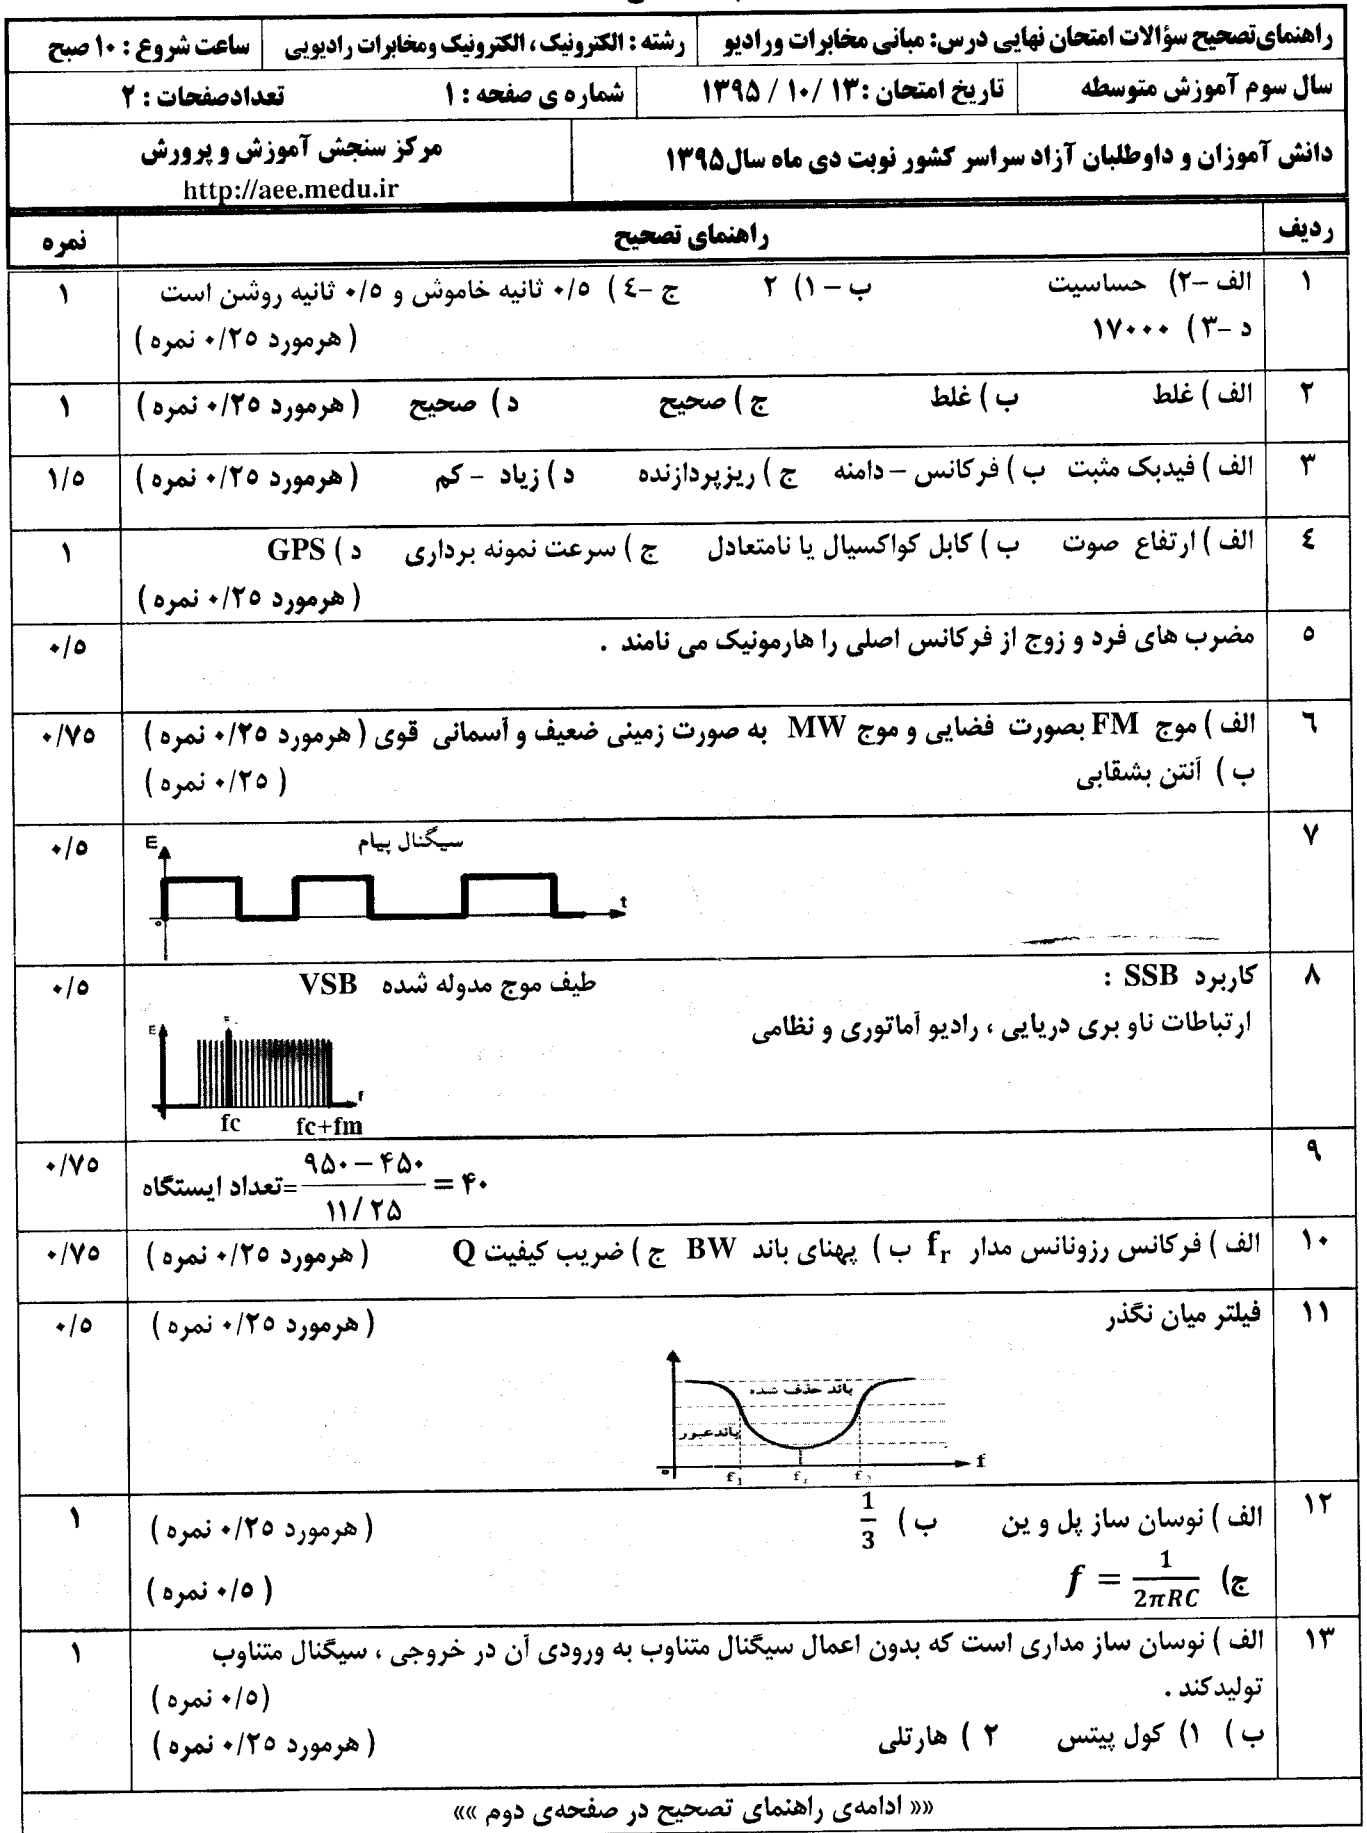 راهنمای‌تصحیح سؤالات امتحان نهایی درس: مبانی مخابرات ورادیو
رشته : الکترونیک ، الکترونیک ومخابرات رادیویی
ساعت شروع : ۱۰ صبح
سال سوم آموزش متوسطه
تاریخ امتحان : ۱۳ / ۱۰ / ۱۳۹۵
شماره ی صفحه : ۱
تعدادصفحات : ۲
دانش آموزان و داوطلبان آزاد سراسر کشور نوبت دی ماه سال۱۳۹۵
مرکز سنجش آموزش و پرورش
http://aee.medu.ir
ردیف راهنمای تصحیح نمره
۱ الف –۲) حساسیت ب – ۱) ۲ ج –٤ ) ۰/۵ ثانیه خاموش و ۰/۵ ثانیه روشن است ۱
د –۳ ) ۱۷۰۰۰ ( هرمورد ۰/۲۵ نمره )
۲ الف ) غلط ب ) غلط ج ) صحیح د ) صحیح ( هرمورد ۰/۲۵ نمره ) ۱
۳ الف ) فیدبک مثبت ب ) فرکانس – دامنه ج ) ریزپردازنده د ) زیاد - کم ( هرمورد ۰/۲۵ نمره ) ۱/۵
٤ الف ) ارتفاع صوت ب ) کابل کواکسیال یا نامتعادل ج ) سرعت نمونه برداری د ) GPS ۱
( هرمورد ۰/۲۵ نمره )
۵ مضرب های فرد و زوج از فرکانس اصلی را هارمونیک می نامند . ۰/۵
٦ الف ) موج FM بصورت فضایی و موج MW به صورت زمینی ضعیف و آسمانی قوی ( هرمورد ۰/۲۵ نمره ) ۰/۷۵
ب ) آنتن بشقابی ( ۰/۲۵ نمره )
۷ سیگنال پیام ۰/۵
E
t
۸ کاربرد SSB : طیف موج مدوله شده VSB ۰/۵
ارتباطات ناو بری دریایی ، رادیو آماتوری و نظامی
E
f
fc fc+fm
۹ تعداد ایستگاه= ۹۵۰ – ۴۵۰ / ۱۱/۲۵ = ۴۰ ۰/۷۵
۱۰ الف ) فرکانس رزونانس مدار fr ب ) پهنای باند BW ج ) ضریب کیفیت Q ( هرمورد ۰/۲۵ نمره ) ۰/۷۵
۱۱ فیلتر میان نگذر ( هرمورد ۰/۲۵ نمره ) ۰/۵
باند حذف شده
باندعبور
f1 fr f2 f
۱۲ الف ) نوسان ساز پل و ین ب ) 1/3 ( هرمورد ۰/۲۵ نمره ) ۱
ج) f = 1/2πRC ( ۰/۵ نمره )
۱۳ الف ) نوسان ساز مداری است که بدون اعمال سیگنال متناوب به ورودی آن در خروجی ، سیگنال متناوب ۱
تولیدکند . (۰/۵ نمره )
ب ) ۱) کول پیتس ۲ ) هارتلی ( هرمورد ۰/۲۵ نمره )
«« ادامه‌ی راهنمای تصحیح در صفحه‌ی دوم »»